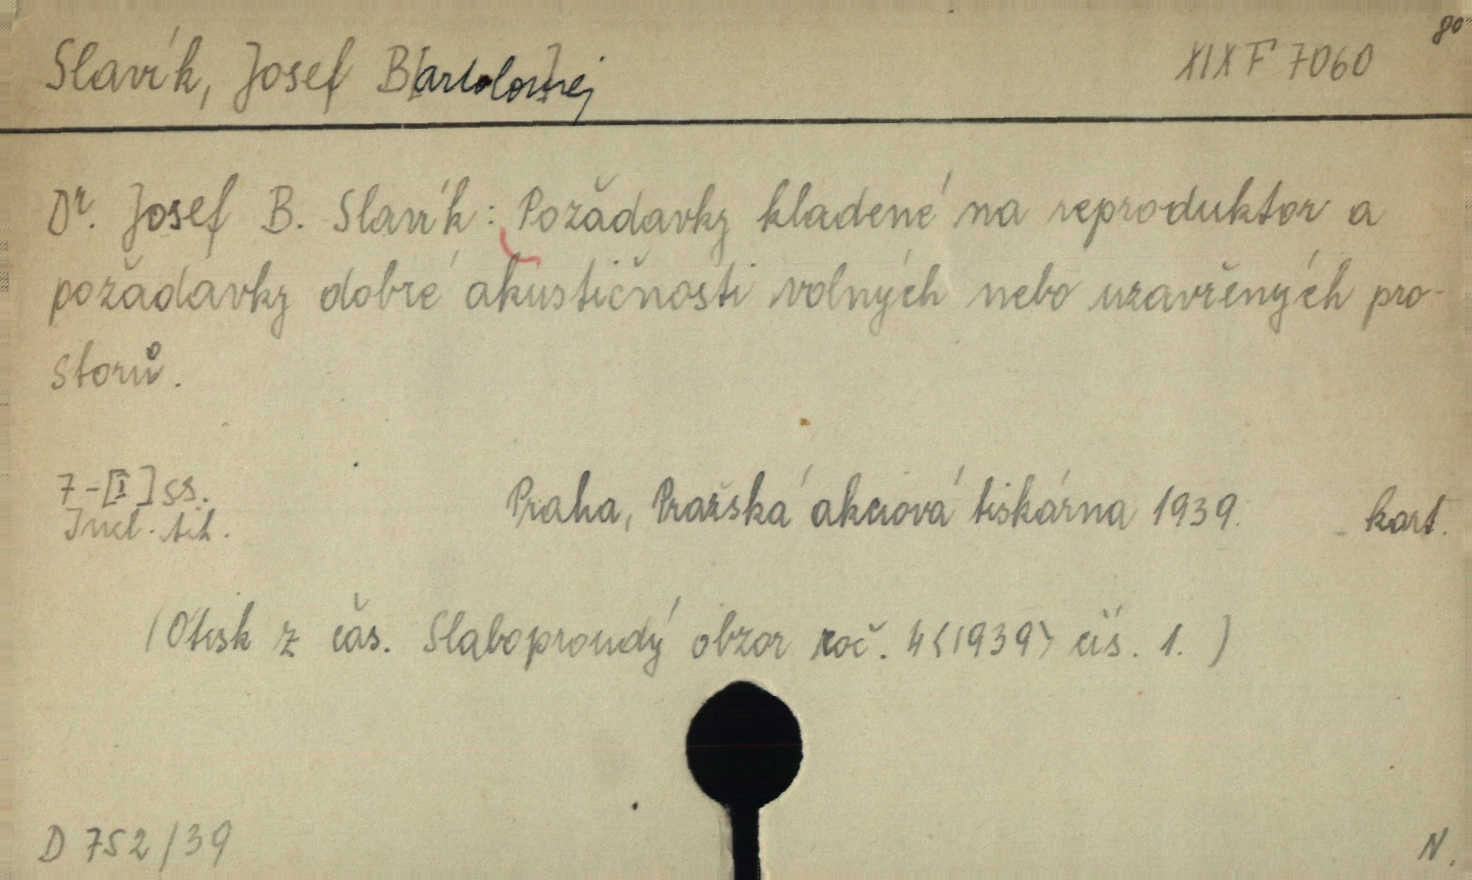 80
Slavík, Josef B[artoloměj]
XIX F 7060
Dr. Josef B. Slavík: Požadavky kladené na reproduktor a
požadavky dobré akustičnosti volných nebo uzavřených pro-
storů.
7-[I] ss.
Incl. tit.
Praha, Pražská akciová tiskárna 1939.
kart.
(Otisk z čas. Slaboproudý obzor roč. 4<1939> čís. 1.)
D 752/39
N.